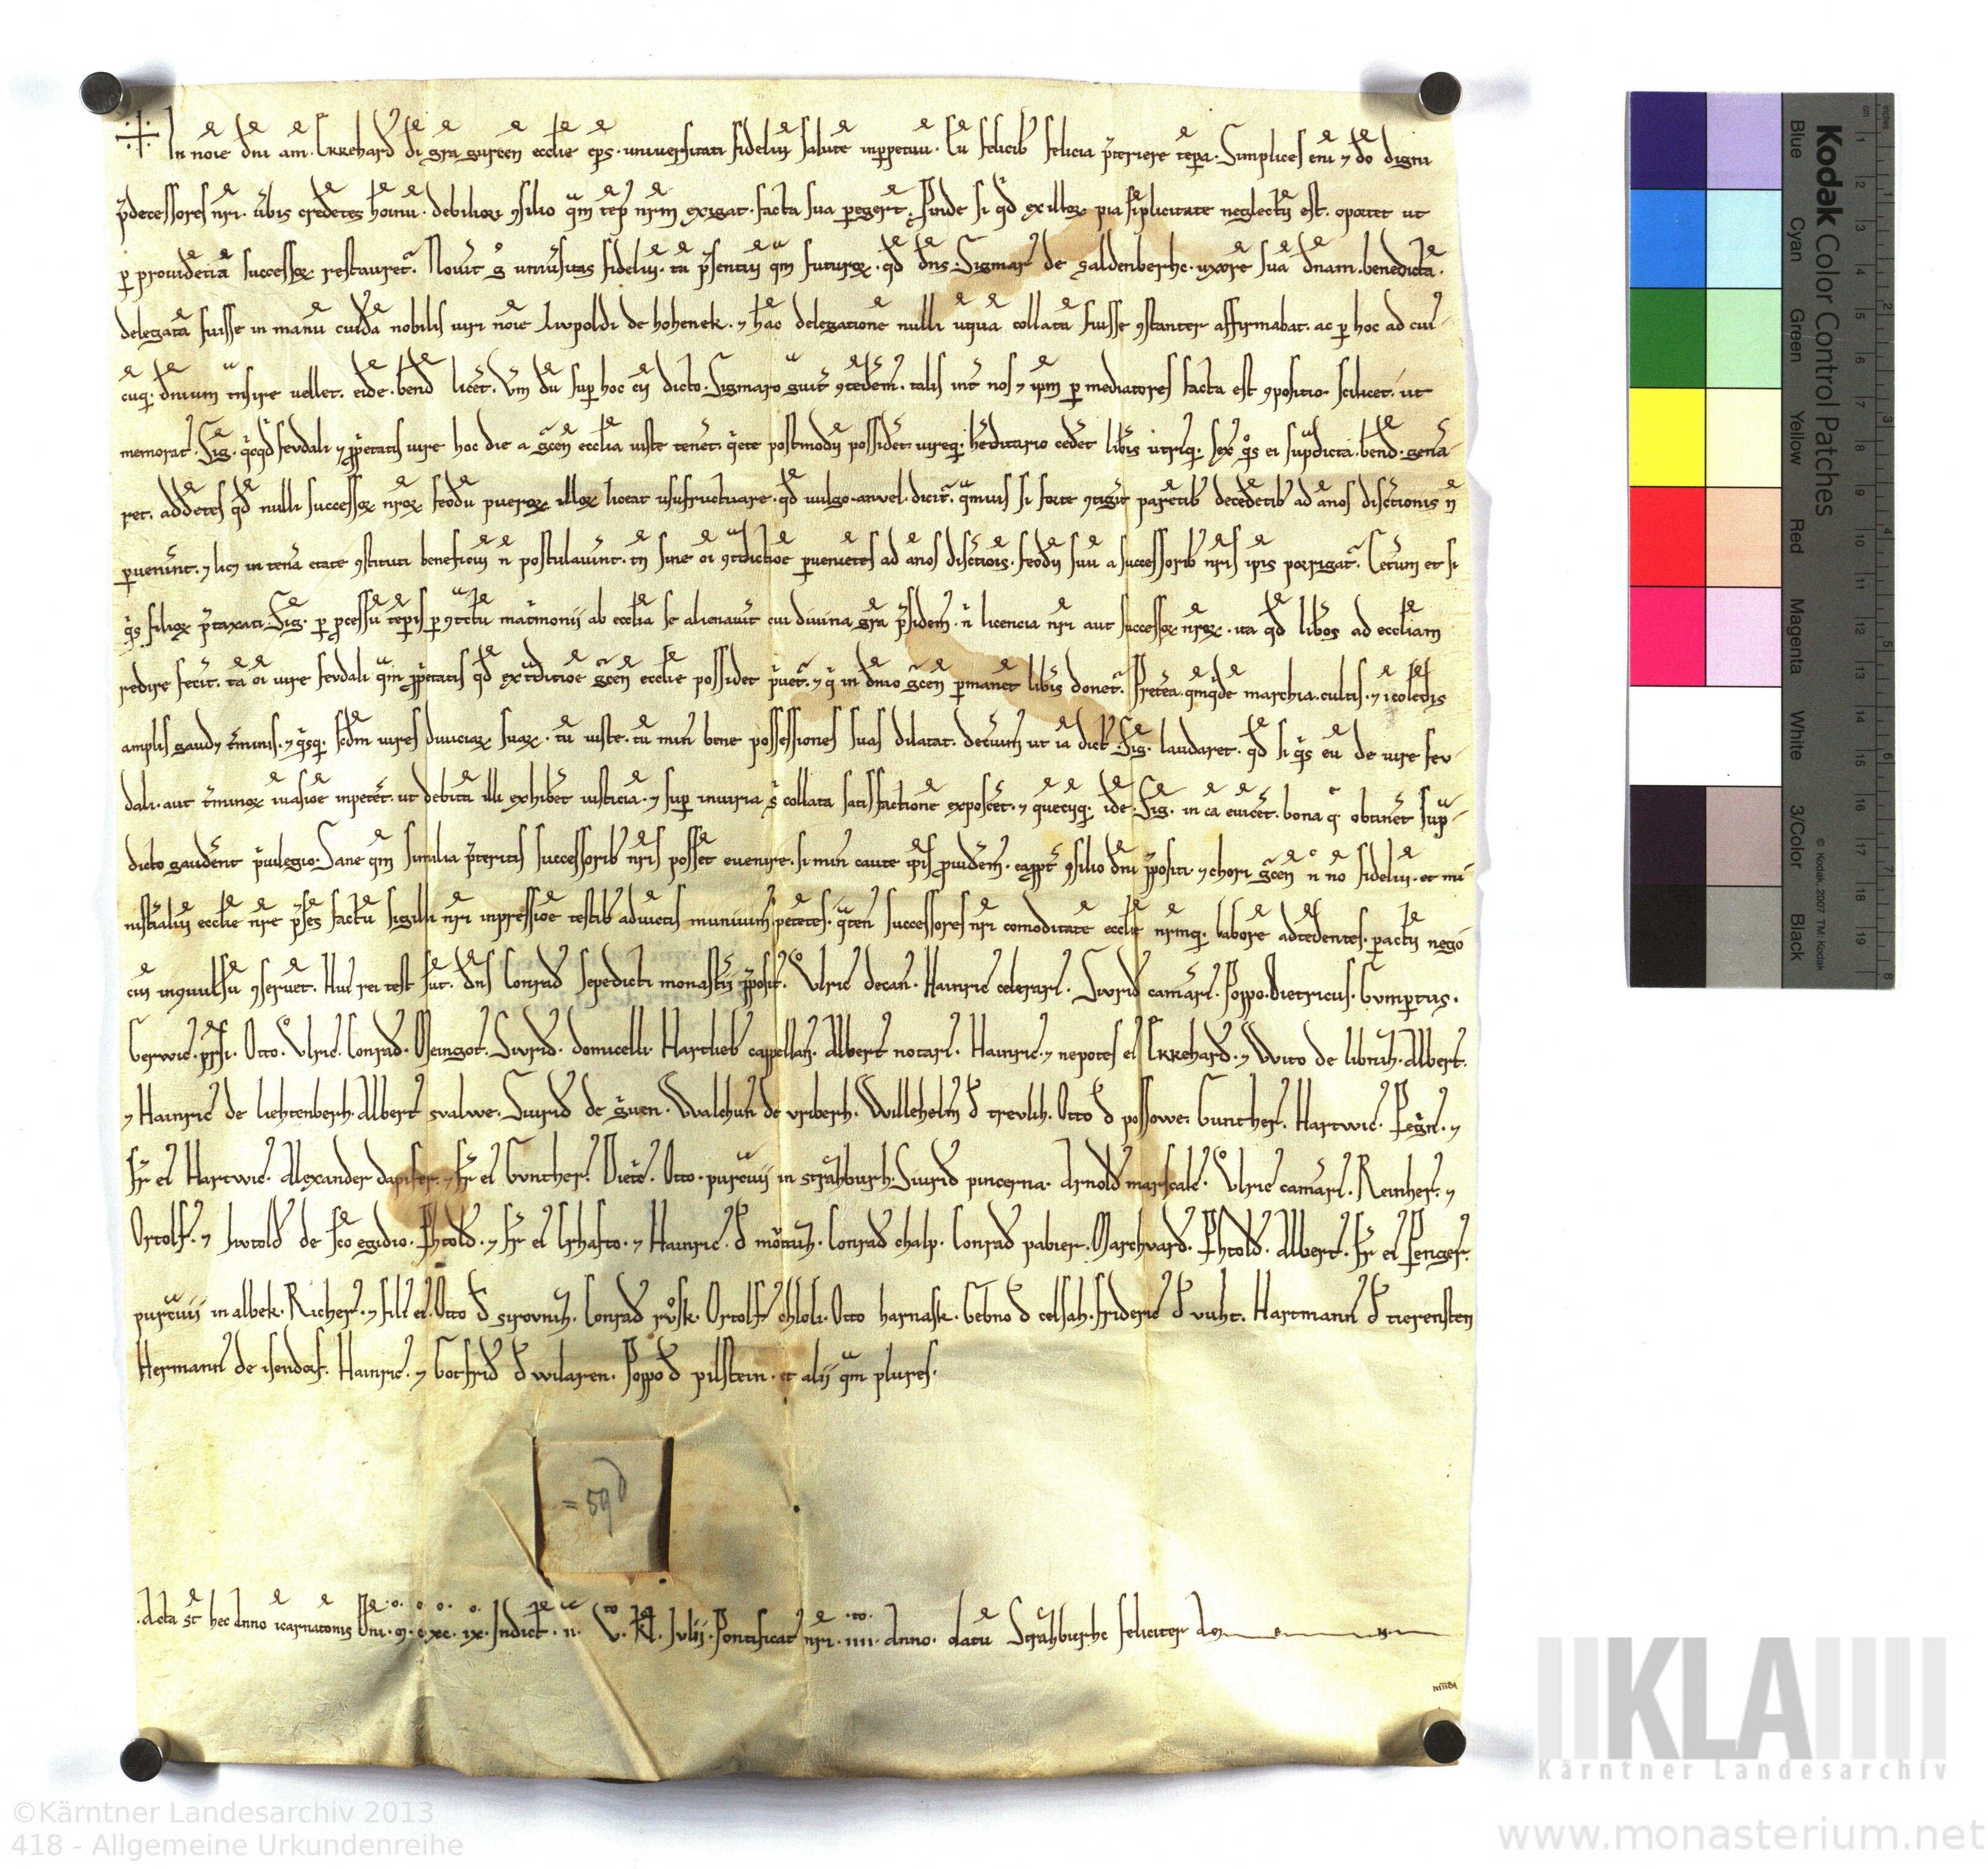 In noīe dn̄i am̄. Ekkehard dī grā gurcen̄ eccl̄ie ep̄s. uniuersitati fideliū salutē inp̱petuū. Cū felicib felicia p̄teriere tēpa. Simplices eni ⁊ dō digni
p̄decessores nr̄i. ūbis credētes hoīnū. debiliori ꝯsilio q̄m tēp̱ nrm̄ exigat. facta sua pegerr̄. P̱inde si qd̄ ex illoꝝ pia sīplicitate neglectū est. oportet ut
ꝑ prouidētiā successoꝝ restauret᷑. Nouit g° uniūsitas fideliū. tā p̄sentiū qm̄ futuroꝝ. qd̄ dn̄s. Sigmar de saldenberhc. uxorē suā dn̄am. benedictā.
delegatā fuisse in manū cuidā nobilis uiri noīe Liupoldi de hohenek. ⁊ hāc delegationē nulli uqua collatā fuisse ꝯstanter affirmabat. ac ꝑ hoc ad cui
cuq̨. dn̄ium tn̄sire uellet. eidē. bend̄ licēt. Vn̄ dū sup hoc cū dicto. Sigmaro guit̄ ꝯtēdem̄. talis int̄ nos ⁊ ip̄m ꝑ mediatores facta est ꝯpositio. scilicet. ut
memorat. Sig. qicqd feudali ⁊ ꝓpetatis iure hoc die a gcen̄ eccl̄ia iuste tenet. qete postmodū possidet. iureq̨. hēditario cedet libis utriq̨. sex. qos ei supdicta. bend̄. genā
ret. addētes qd̄ nulli successoꝝ nr̄oꝝ feodū pueroꝝ illoꝝ liceat usufructuare. qd̄ uulgo anuel. dicit᷑. q̄muis si forte ꝯtigit parētib decedētib ad ānos disc̄tionis n̄
ꝑuenīnt. ⁊ lic̨ in tenā etate ꝯstituti beneficiū n̄ postulauīnt. tn̄ sine oī ꝯtdictiōe ꝑueniētes ad ānos disc̄tiōis. feodū suū a successorib nr̄is ip̄is porrigat᷑. Cetum et si
qis filioꝝ p̄taxati. Sig. ꝑ ꝓcessū tēpis ꝑ ꝯtctū matimonii ab eccl̄ia se alienauit cui diuina grā p̄sidem̄. n̄ licencia nr̄i aut successoꝝ nr̄oꝝ. ita qd̄ libos ad eccl̄iam
redire fecit. tā oī iure feudali qm̄ ꝓpetatis qd̄ ex tditiōe gcen̄ eccl̄ie possidet puet᷑. ⁊ q in dn̄io gcen̄ ꝑmanet libis donet᷑. Pretea. qmqdē marchia. cultis. ⁊ īcoletis
amplis gaud̨ tminis. ⁊ qsq̨. scdm uires diuiciaꝝ suaꝝ. tū iuste. tū min bene possessiones suas dilatat. decuim ut iā dict. Sig. laudaret. qd̄ si qis eū de iure feu
dali. aut tminoꝝ īuasiōe inpetet. ut debitā illi exhibet iusticiā. ⁊ sup iniuria s collata satisfactionē exposcet. ⁊ quecūq̨. idē. Sig. in cā euicet. bona q obtinet sup
dicto gaudēnt puilegio. Sane qm̄ similia p̄teritis successorib nr̄is possēt euenire. si min caute ipsis ꝓuidem̄. ꝯsilio dn̄i ꝓpositi. ⁊ chori gcen̄ n̄ nō fideliū. et mi
nistaliū eccl̄ie nr̄e p̄ses factū sigilli nr̄i inpressiōe testib adiūctis muniuim petētes. qten̄ successores nr̄i comoditatē eccl̄ie nr̄mq̨. laborē adtēdentes. pactū nego
ciū incōuulsū ꝯseruet. Hui rei test sūt. dn̄s Conrad sepedicti monastīi ꝓposit. Vlric decan. Hainric celerari. Siurid camari. Poppo. Dietricus. Gumptus.
Gerwic. p̄sbi. Otto. Vlric. Conrad. Meingot. Siurid. domicelli. Hartlieb cappellan. Albert notari. Hainric. ⁊ nepotes ei Ekkehard. ⁊ Wito de libnih. Albert.
⁊ Hainric de liehtenberh. Albert sualwe. Siurid de guen. Walchun de uriberh. Willehelm d treulih. Otto d possowe. Gunther. Hartwic. Pegn. ⁊
fr ei Hartwic. Alexander dapifer. ⁊ fr ei Gunther. Dietc. Otto. purcuii in strahburh. Siurid pincerna. Arnold marscalc. Vlric camari. Reinher. ⁊
Ortolf. ⁊ Liutold de sc̄o egidio. Phtold. ⁊ fr ei Erhasto. ⁊ Hainric. d motniz. Conrad chalp. Conrad pabier. Marchuard. Phtold. Albert. fr ei Penger.
purcuii in albek. Richer. ⁊ filii ei. Otto d sirouniz. Conrad rusk. Ortolf chloli. Otto harnask. Gebno d celsah. Frideric d vuht. Hartmann d tierensten
Hermann de isendorf. Hainric. ⁊ Gotfrid d wilaren. Poppo d pilstein. et alii qm̄ plures.
= 59
Acta st̄ hec Anno īcarnatonis Dn̄i. ꝏ. c. xc. ix. Indict. ii. V. Kl. Julii. Pontificat nr̄i. iiii. Anno. datū Strahburhc feliciter Am e n.
Kodak Color Control Patches
Blue Cyan Green Yellow Red Magenta White 3/Color Black
© Kodak, 2007 TM: Kodak
cm 1 2 3 4 5 6 7 8 9 10 11 12 13 14 15 16 17 18 19
inches 1 2 3 4 5 6 7 8
KLA
Kärntner Landesarchiv
©Kärntner Landesarchiv 2013
418 - Allgemeine Urkundenreihe
www.monasterium.net